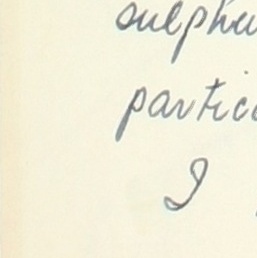 sulphu
partic
I